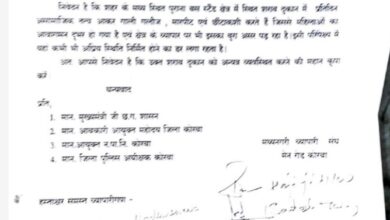 निवेदन है कि शहर के मध्य स्थित पुराना बस स्टैंड क्षेत्र में स्थित शराब दुकान में प्रतिदिन
असामाजिक तत्व आकर गाली गलौज, मारपीट एवं छींटाकशी करते हैं जिससे महिलाओं का
आवागमन दूभर हो गया है एवं क्षेत्र के व्यापार पर भी इसका बुरा असर पड़ रहा है। इसी परिपेक्ष्य में
यहां कभी भी अप्रिय स्थिति निर्मित होने का डर लगा रहता है।
अतः आपसे निवेदन है कि उक्त शराब दुकान को अन्यत्र व्यवस्थित करने की महान कृपा
करें
धन्यवाद
प्रति,
1. मान. मुख्यमंत्री जी छ.ग. शासन
2. मान. आबकारी आयुक्त महोदय जिला कोरबा
3. मान.आयुक्त न.पा.नि. कोरबा
4. मान. जिला पुलिस अधीक्षक कोरबा
मध्यनगरी व्यापारी संघ
मेन रोड कोरबा
हस्ताक्षर समस्त व्यापारीगण-